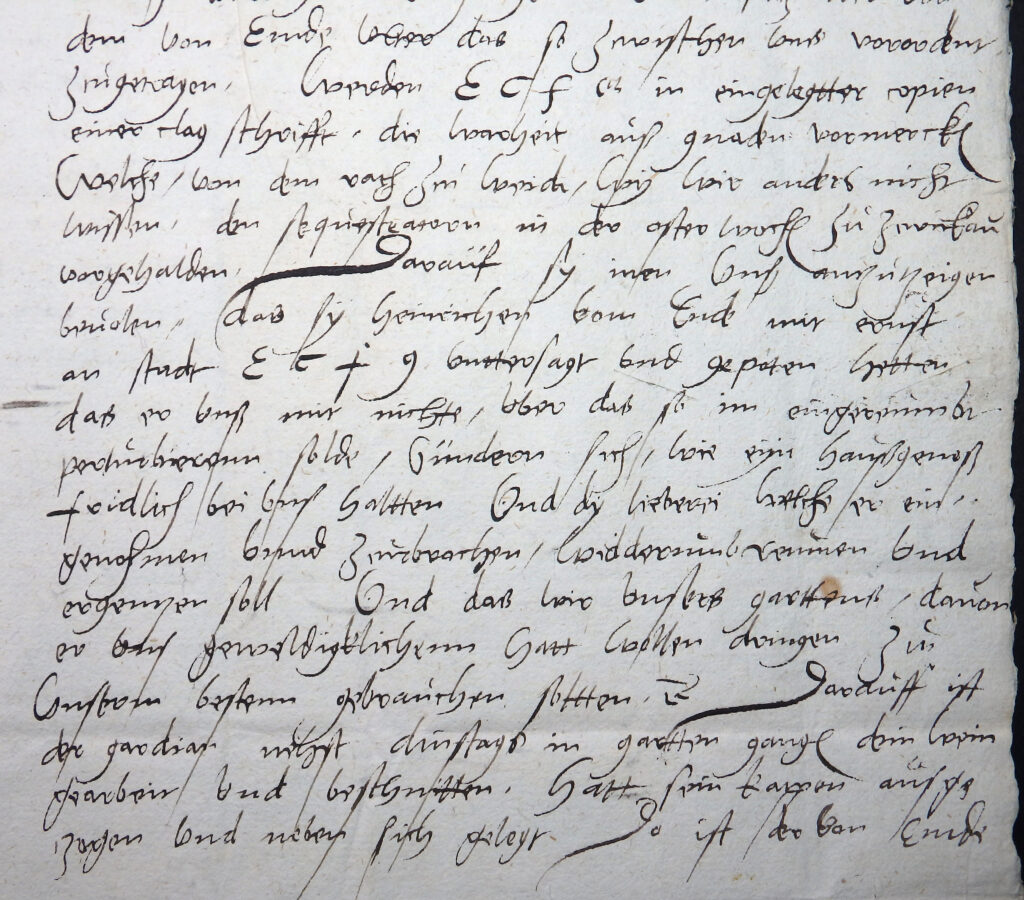 dem von Ende vber das so zwischen vns vorordent
zugetragen. Werden E C f g in eingelegtter copien
einer clag schrifft, die warheit auß gnaden vormercken
Welche, von dem rath zu Weida, Wy wir anders nicht
wissen, den sequestratorn in der osterwochen zu Zwickau
vorgehalden. Darauf sy inen Vnß anzutzeigen
beuolen, das sy Heinrichen vom Ende mit ernst
an stadt E C f g vnttersagt vnd gepoten hetten
das er vnß mit nichte, vber das so im eingereumbt
perturbierenn solde, Sundern sich, wie eyn haußgenoß
fridlich bei vnß haltten Vnd dy lieberei welche er ein
genohmen vnnd zurbrochen, widderumb reumen vnd
ergentzen soll Vnd das wir vnsers garttens, dauon
er vns geweldigklichenn hatt wollen dringen zu
Vnserm bestenn gebrauchen soltten. Darauff ist
der gardian nehst dinstags in gartten gangen den wein
gearbeit vnd beschnitten. Hatt sein kappen ausge
zogen vnd neben sich gelegt Do ist der von Ende